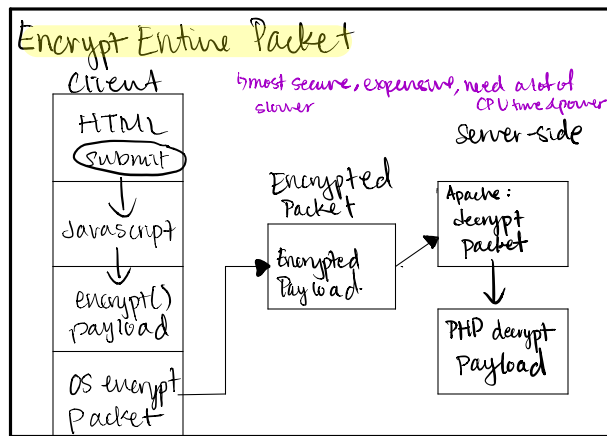 Encrypt Entire Packet
Client
↳most secure, expensive, need a lot of
slower
CPU time & power
Server-side
HTML
submit
Javascript
encrypt()
payload
OS encrypt
packet
Encrypted
Packet
Encrypted
Payload.
Apache:
decrypt
packet
PHP decrypt
payload